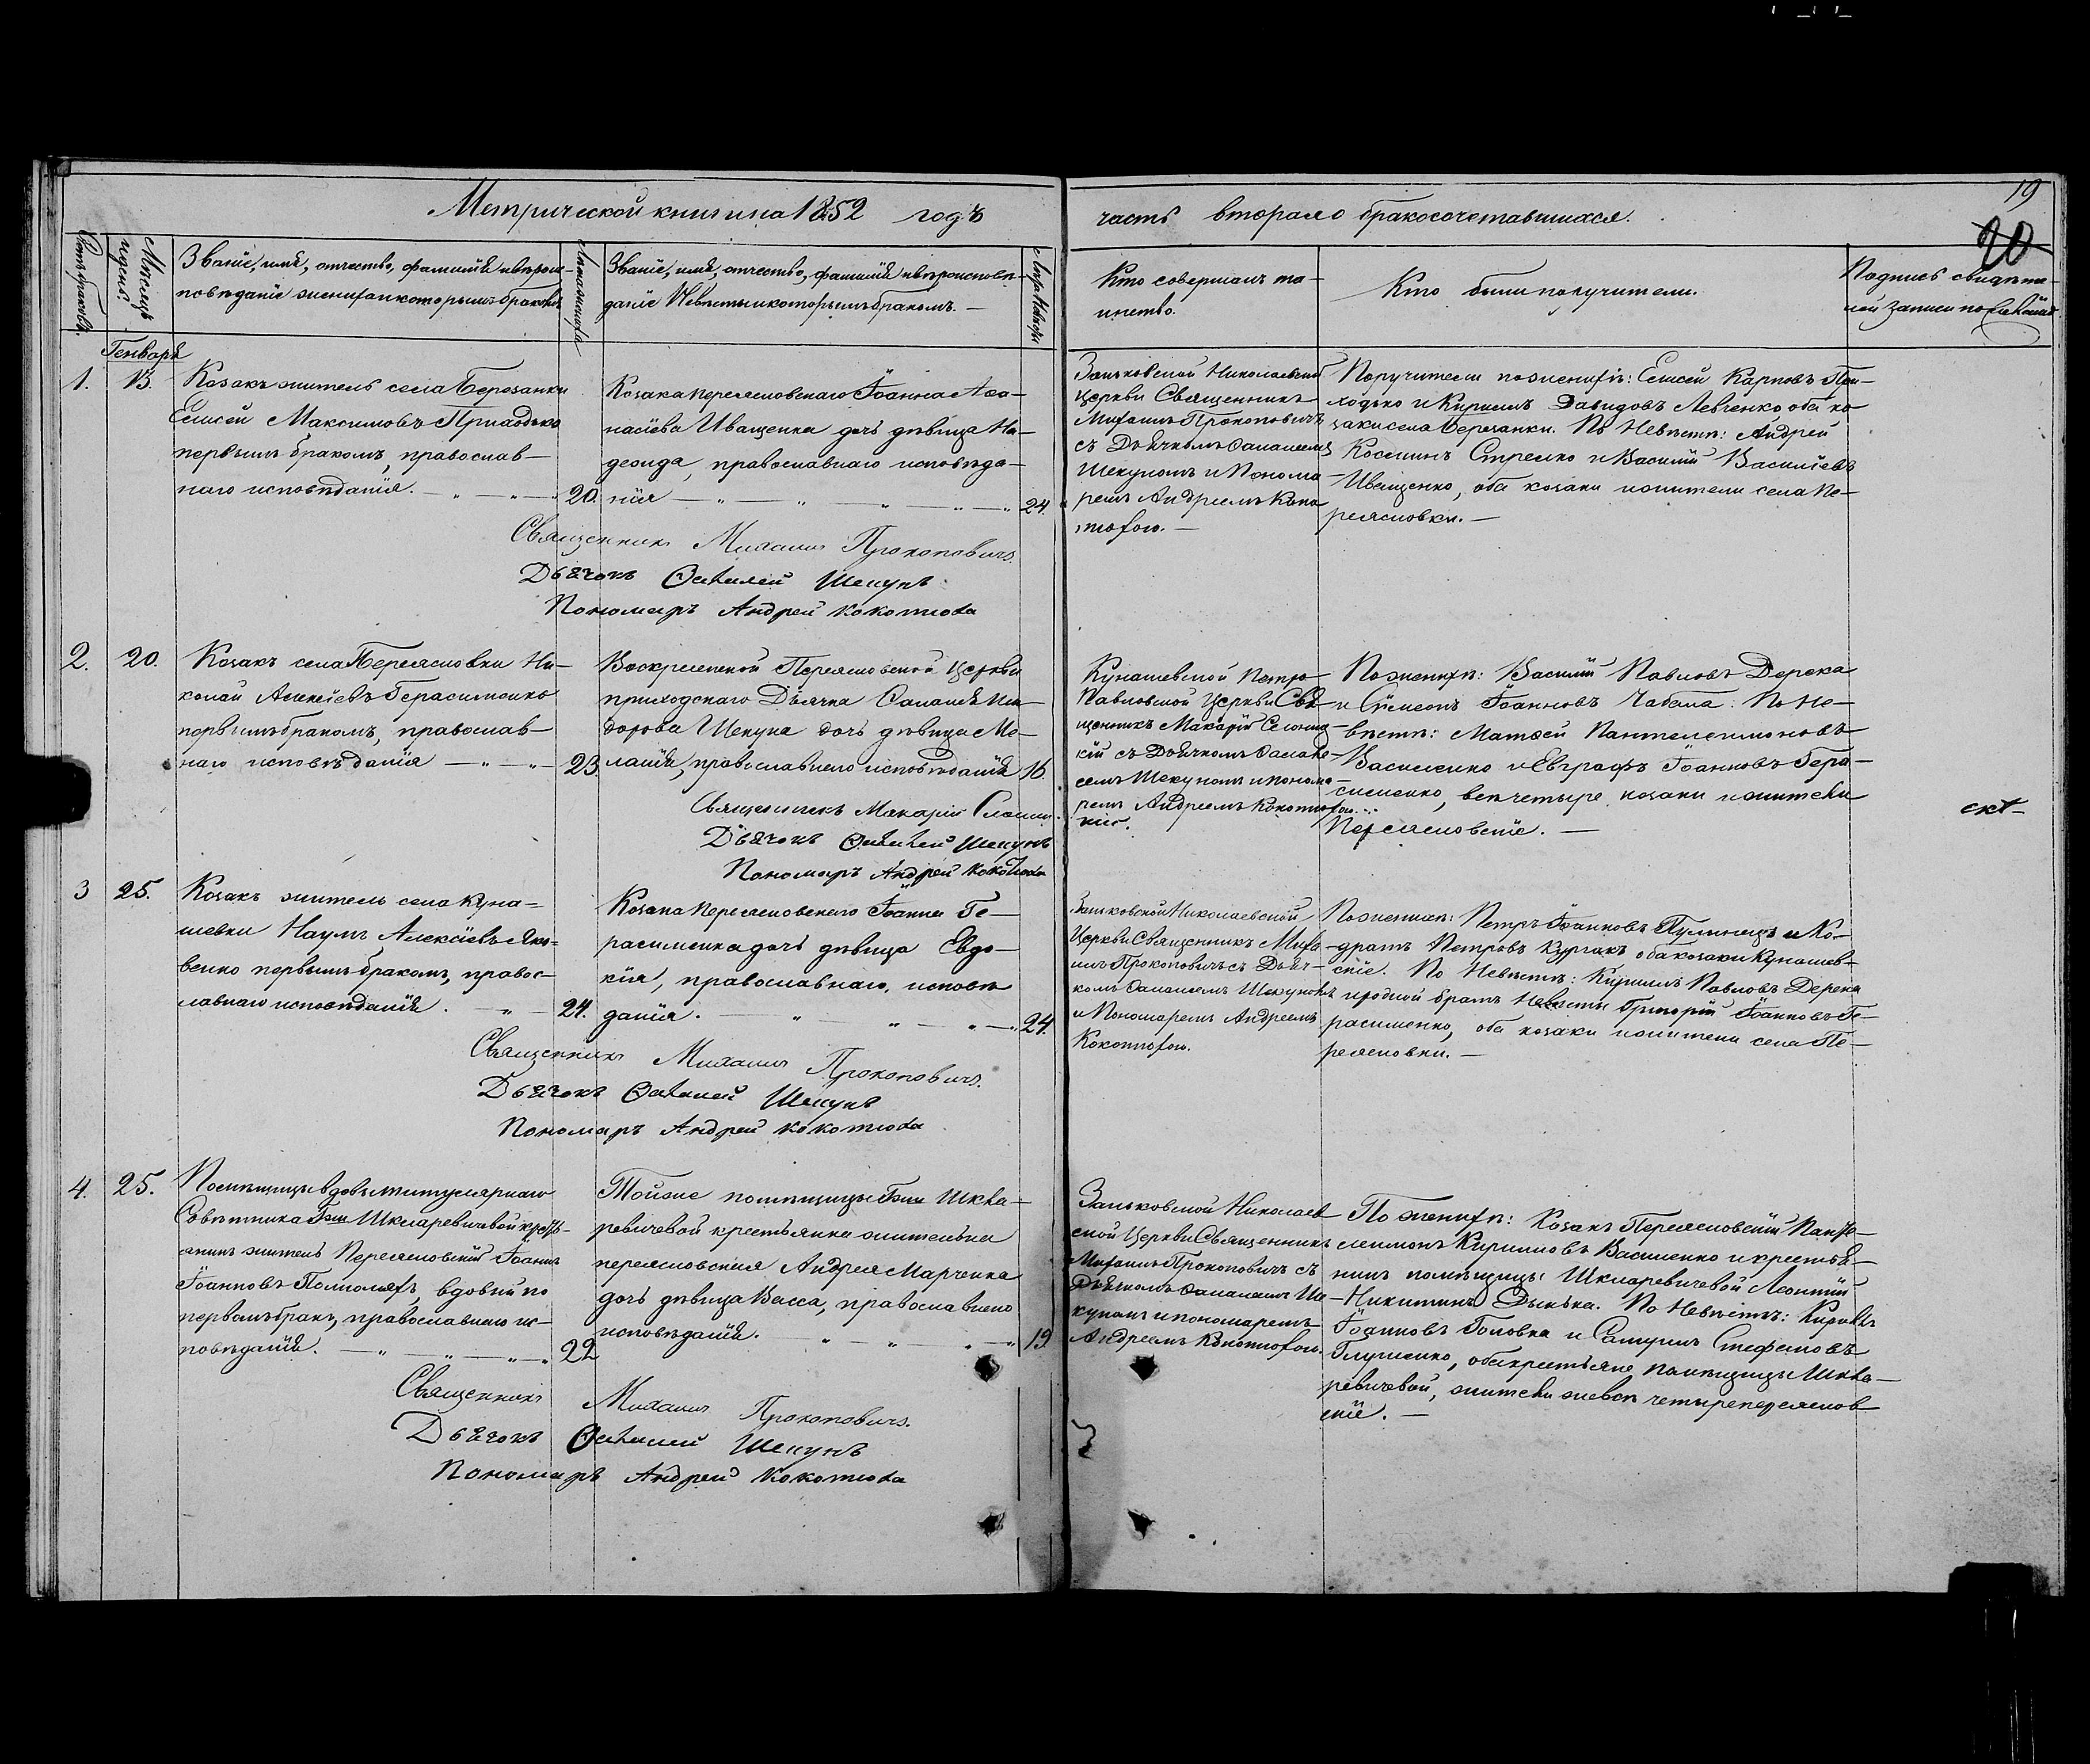 19
20
Метрической книги на 1852 годъ
часть вторая о бракосочетавшихся.
Счетъ браковъ.
Мѣсяцъ и день.
Званіе, имя, отчество, фамилія и вѣроис-
повѣданіе жениха и которымъ бракомъ
Лѣта жениха
Званіе, имя, отчество, фамилія и вѣроисповѣ-
даніе Невѣсты и которымъ бракомъ. —
Лѣта Невѣсты
Кто совершалъ та-
инство.
Кто были поручители.
Подпись свидѣте-
лей записи по
Генваря
1.
13.
Козакъ житель села Березанки
Елисей Максимовъ Приходько
первымъ бракомъ, православ-
наго исповѣданія.
20.
Козака переясловскаго Іоанна Аѳа-
насіева Иващенка дочь дѣвица На-
деоида, православнаго исповѣда-
нія
24.
Заньковской Николаевской
Церкви Священникъ
Михаилъ Прокоповичъ
съ Дьячкомъ Саламеемъ
Шекуномъ и Понома
ремъ Андреемъ Коко
тюхою. —
Поручители по женихѣ: Елисей Карповъ При-
ходько и Кириллъ Давидовъ Левченко оба ко
заки села Березанки. По Невѣстѣ: Андрей
Косминъ Стрелко и Василій Василіевъ
Иващенко, оба козаки и жители села Пе-
реясловки. —
Священникъ Михаилъ Прокоповичъ.
Дьячокъ Шекунъ
Пономарь Андрей Кокотюха
2.
20.
Козакъ села Переясловки Ни-
колай Алексіевъ Герасименко
первымъ бракомъ, православ-
наго исповѣданія
23
Воскресенской Переясловской Церкви
приходскаго Дьячка Саламея Иси-
дорова Шекуна дочь дѣвица Ме-
ланія, православнаго исповѣданія
16
Кунашевской Петро
Павловской Церкви Свя-
щенникъ Макарій
кій съ Дьячкомъ Салама-
емъ Шекуномъ и понома-
ремъ Андреемъ Кокотюхою.
По женихѣ: Василій Павловъ Дерека
и Сѵмеонъ Іоанновъ Чабала. По Не-
вѣстѣ: Матѳей Пантелеимоновъ
Василенко и Евграфъ Іоанновъ Гера-
сименко, всѣ четыре козаки и жители
Переясловскіе. —
Священникъ Макарій
Дьячокъ Шекунъ
Пономарь Андрей Кокотюха
3
25.
Козакъ житель села Куна-
шевки Наумъ Алексіевъ Яко-
венко первымъ бракомъ, правос-
лавнаго исповѣданія.
24.
Козака Переясловскаго Іоанна Ге-
расименка дочь дѣвица Евдо-
кія, православнаго исповѣ
данія.
24.
Заньковской Николаевской
Церкви Священникъ Миха-
илъ Прокоповичъ съ Дьяч-
комъ Саламеемъ Шекуномъ
и Пономаремъ Андреемъ
Кокотюхою.
По женихѣ: Петръ Іоанновъ Пулинецъ и Ко-
дратъ Петровъ Кургакъ оба козаки Кунашев-
скіе. По Невѣстѣ: Кириллъ Павловъ Дерека
и родной братъ Невѣсты Григорій Іоанновъ Ге-
расименко, оба козаки и жители села Пе-
реясловки. —
Священникъ Михаилъ Прокоповичъ.
Дьячокъ Шекунъ
Пономарь Андрей Кокотюха
4.
25.
Помѣщицы вдовы титулярнаго
Совѣтника Гжи Шкляревичевой кресть-
янинъ житель Переясловскій Іоаннъ
Іоанновъ вдовый по
первомъ бракѣ, православнаго ис-
повѣданія.
22
Тойже помѣщицы Гжи Шкля-
ревичевой крестьянки жительки
переясловскія Андрея Марченка
дочь дѣвица Васса, православнаго
исповѣданія.
19
Заньковской Николаев
ской Церкви Священникъ
Михаилъ Прокоповичъ съ
Дьячкомъ Саламеемъ Ше-
куномъ и пономаремъ
Андреемъ Кокотюхою.
По женихѣ: Козакъ Переясловскій Панте-
леимонъ Кирилловъ Василенко и крестья-
нинъ помѣщицы Шкляревичевой Леонтій
Никитинъ Дынька. По Невѣстѣ: Кириллъ
Іоанновъ Головка и Самуилъ Стефановъ
Глушенко, оба крестьяне помѣщицы Шкля-
ревичевой, жители же всѣ четыре переяслов
скіе. —
Священникъ Михаилъ Прокоповичъ.
Дьячокъ Шекунъ
Пономарь Андрей Кокотюха